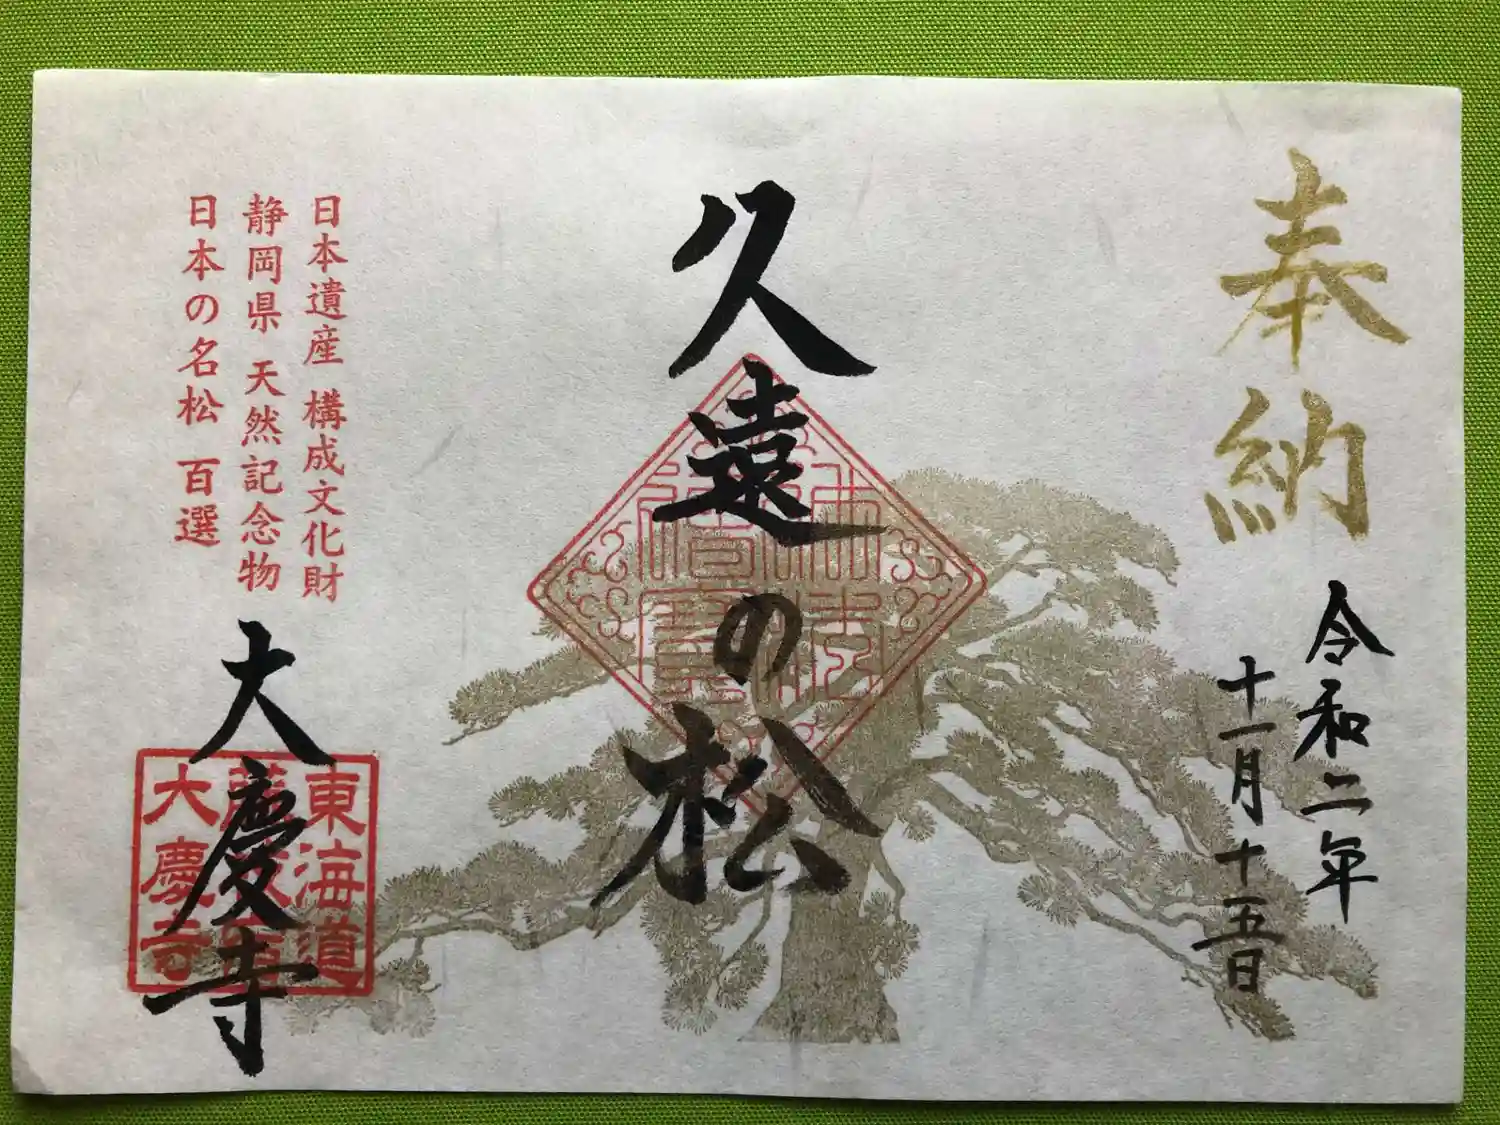 奉納
令和二年
十一月十五日
久遠の松
佛法僧寶
日本遺産 構成文化財
静岡県 天然記念物
日本の名松 百選
大慶寺
東海道
藤枝宿
大慶寺